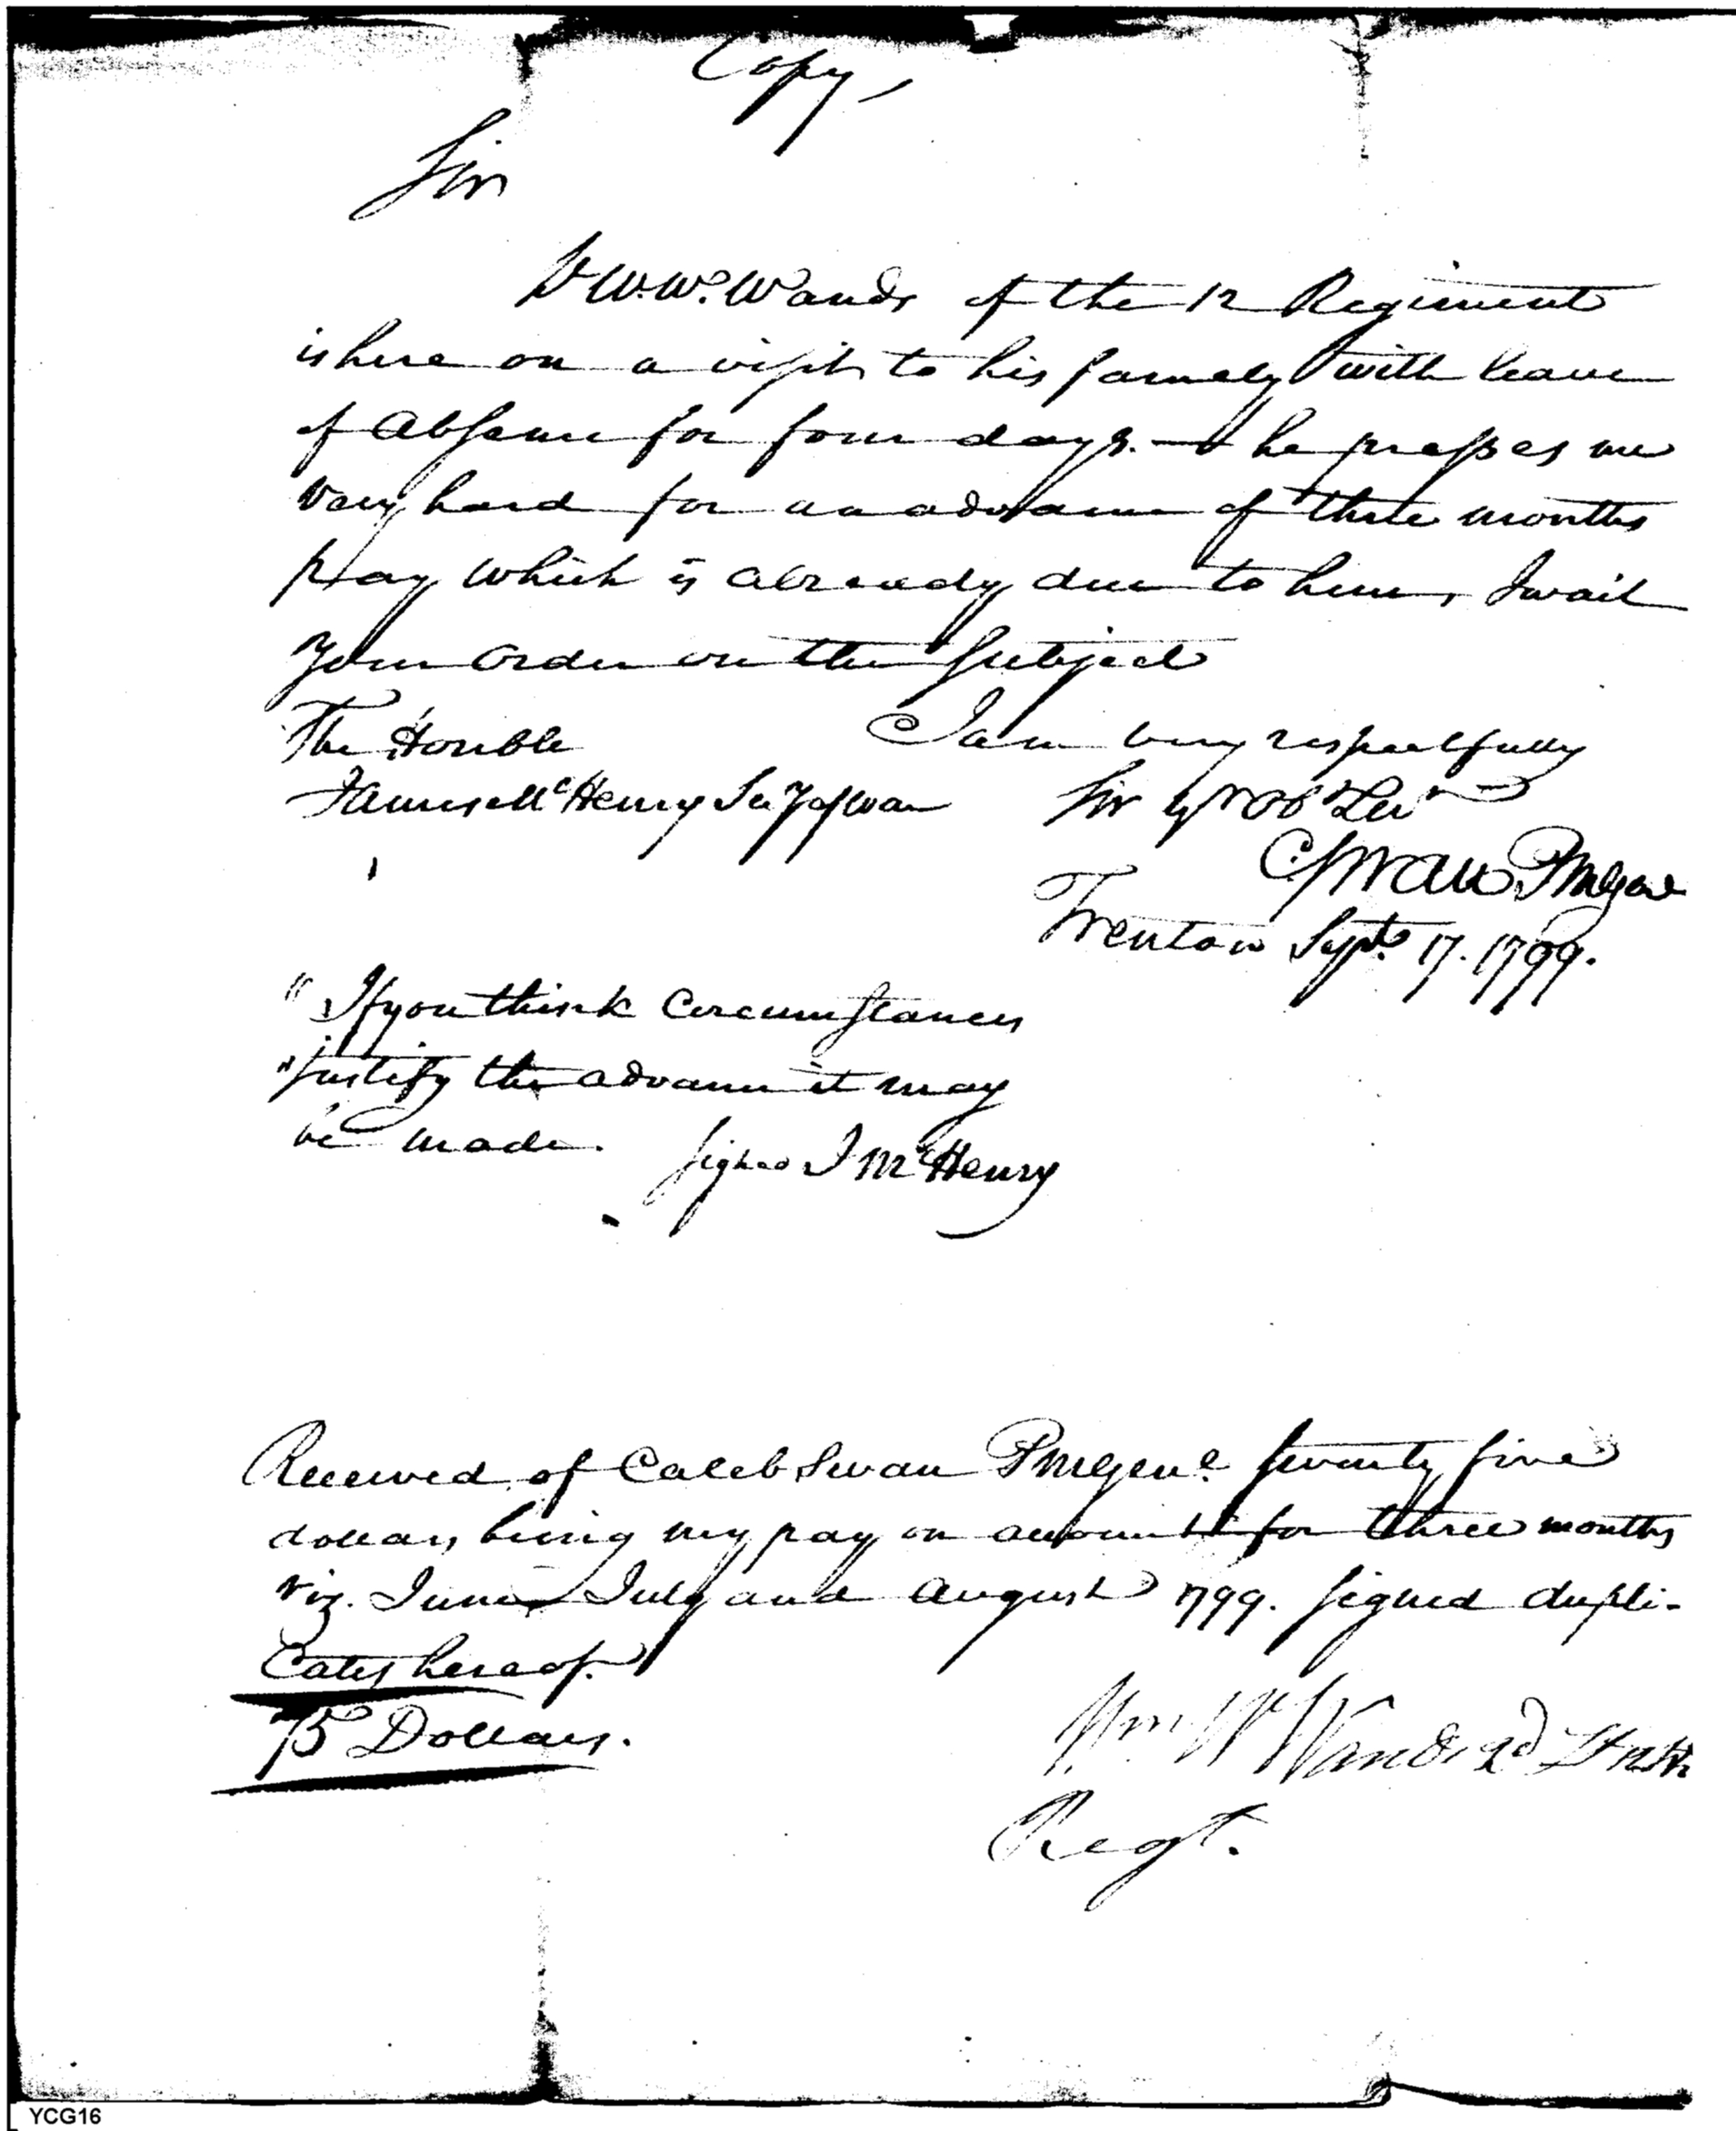 Copy,
Sir
Lt W. W. Wands of the 12 Regiment
is here on a visit to his famely with leave
of Absence for four days. — he presses me
very hard for an advance of three months
pay which is already due to him, I wait
your order on the subject
The Honble I am very respectfully
James McHenry Secy of War Sir yr Ob Ser
C Swan PMGenl
Trenton Sept. 17. 1799.
"If you think Circumstances
"justify the advance it may
be made. signed J McHenry
Received of Caleb Swan PMGenl. seventy five
dollars, being my pay on account for three months
viz. June July and August 1799. signed dupli-
cates hereof.
75 Dollars.
Wm W Wands 2d Lt 12th
Regt.
YCG16